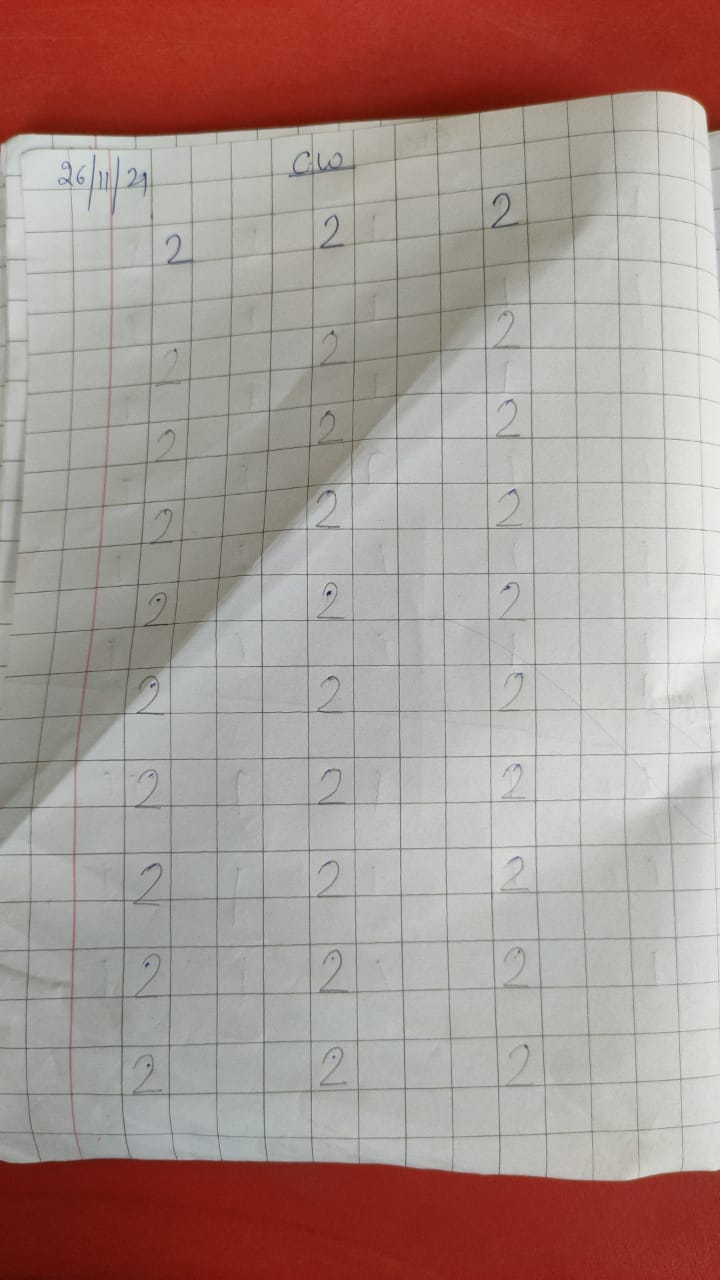 26/11/21 C.W
2 2 2
2 2 2
2 2 2
2 2 2
2 2 2
2 2 2
2 2 2
2 2 2
2 2 2
2 2 2